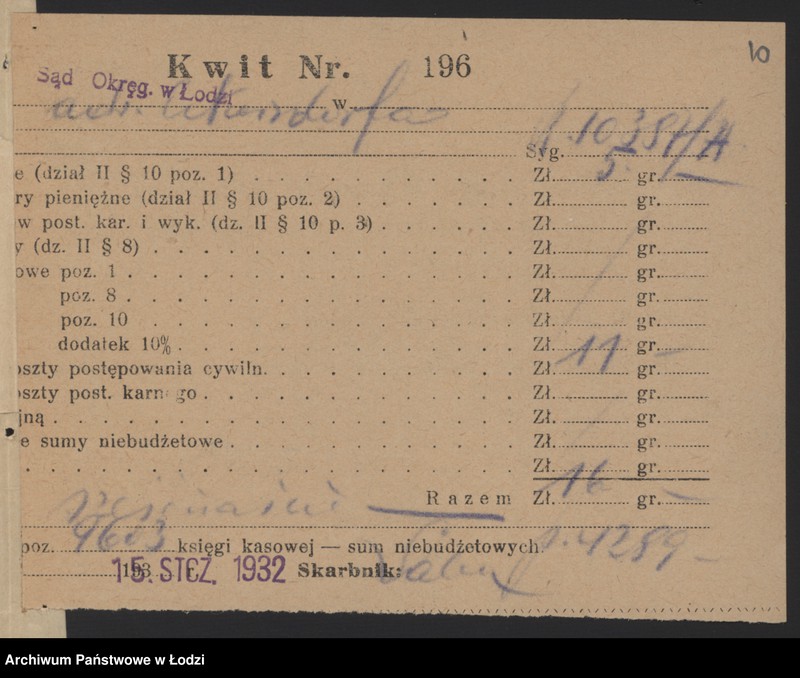 10
Kwit Nr. 196
Sąd Okręg. w Łodzi
w
Syg.
e (dział II § 10 poz. 1) Zł. 5 gr. —
ry pieniężne (dział II § 10 poz. 2) Zł. gr.
w post. kar. i wyk. (dz. II § 10 p. 3) Zł. gr.
y (dz. II § 8) Zł. gr.
owe poz. 1 Zł. gr.
poz. 8 Zł. gr.
poz. 10 Zł. gr.
dodatek 10% Zł. 11 gr. —
oszty postępowania cywiln. Zł. gr.
oszty post. karnego Zł. gr.
jną Zł. gr.
e sumy niebudżetowe Zł. gr.
Zł. gr.
Razem Zł. 16 gr. —
poz. 4603 księgi kasowej — sum niebudżetowych. p. 4289 —
193
15. STCZ. 1932 Skarbnik:
Archiwum Państwowe w Łodzi